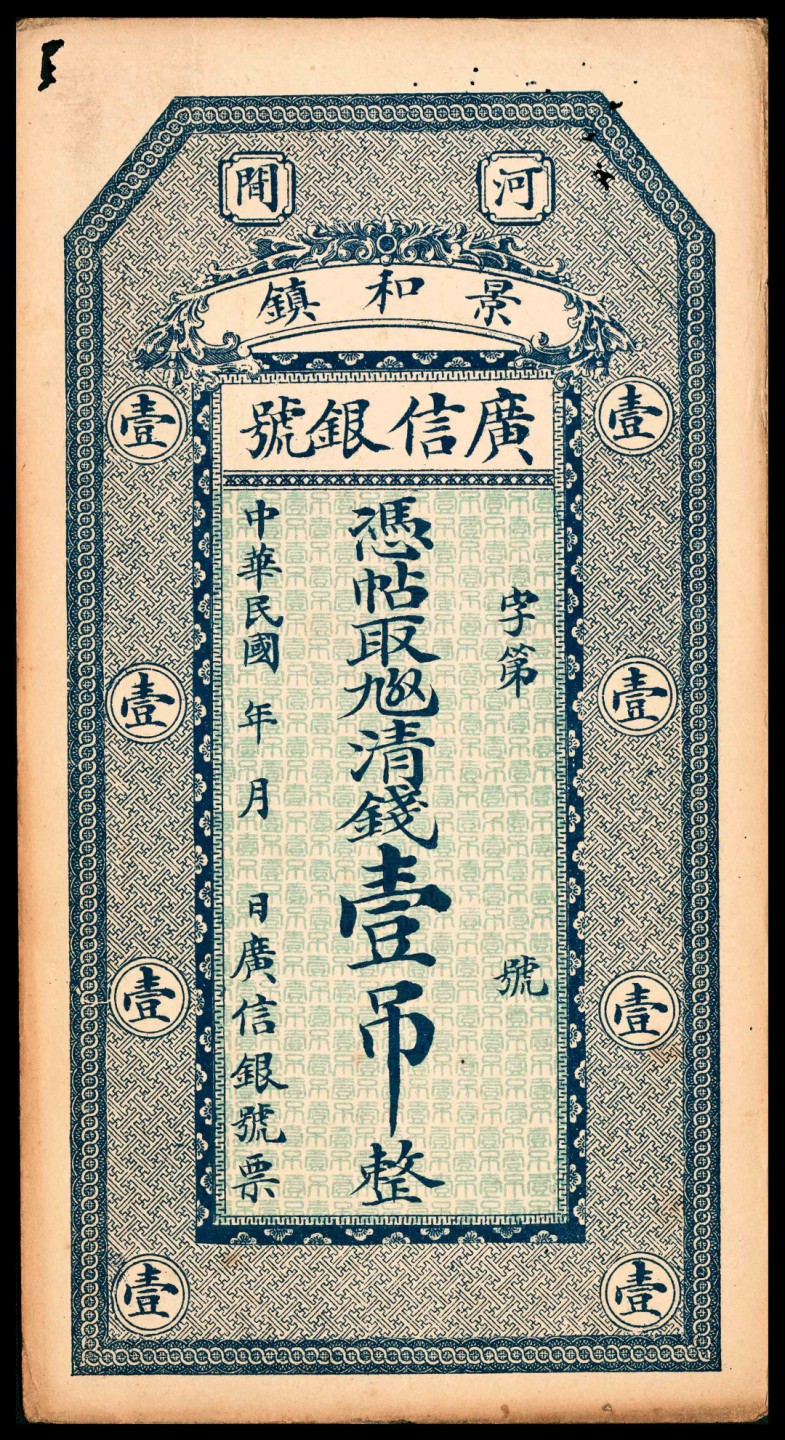 河間
景和鎮
廣信銀號
字第 號
憑帖取 清錢壹吊整
中華民國 年 月 日廣信銀號票
壹
壹
壹
壹
壹
壹
壹
壹